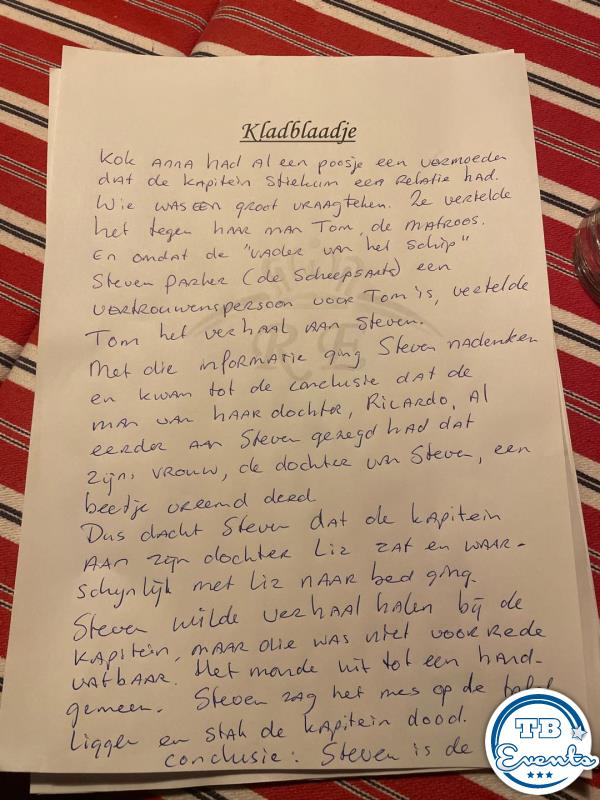 Kladblaadje
Kok ANNA had Al een poosje een vermoeden
dat de kapitein stiekum een Relatie had.
Wie was een groot vraagteken. Ze vertelde
het tegen haar man Tom, de matroos.
En omdat de "vader van het schip"
Steven Parker (de Scheepsarts) een
vertrouwenspersoon voor Tom is, vertelde
Tom het verhaal aan Steven.
Met die informatie ging Steven nadenken
en kwam tot de conclusie dat de
man van haar dochter, Ricardo, Al
eerder aan Steven gezegd had dat
zijn vrouw, de dochter van Steven, een
beetje vreemd deed.
Dus dacht Steven dat de kapitein
aan zijn dochter Liz zat en waar-
schynlijk met Liz naar bed ging.
Steven wilde verhaal halen bij de
kapitein, maar die was niet voor Rede
vatbaar. Het monde uit tot een hand-
gemeen. Steven zag het mes op de tafel
liggen en stak de kapitein dood.
conclusie: Steven is de
TB
Events